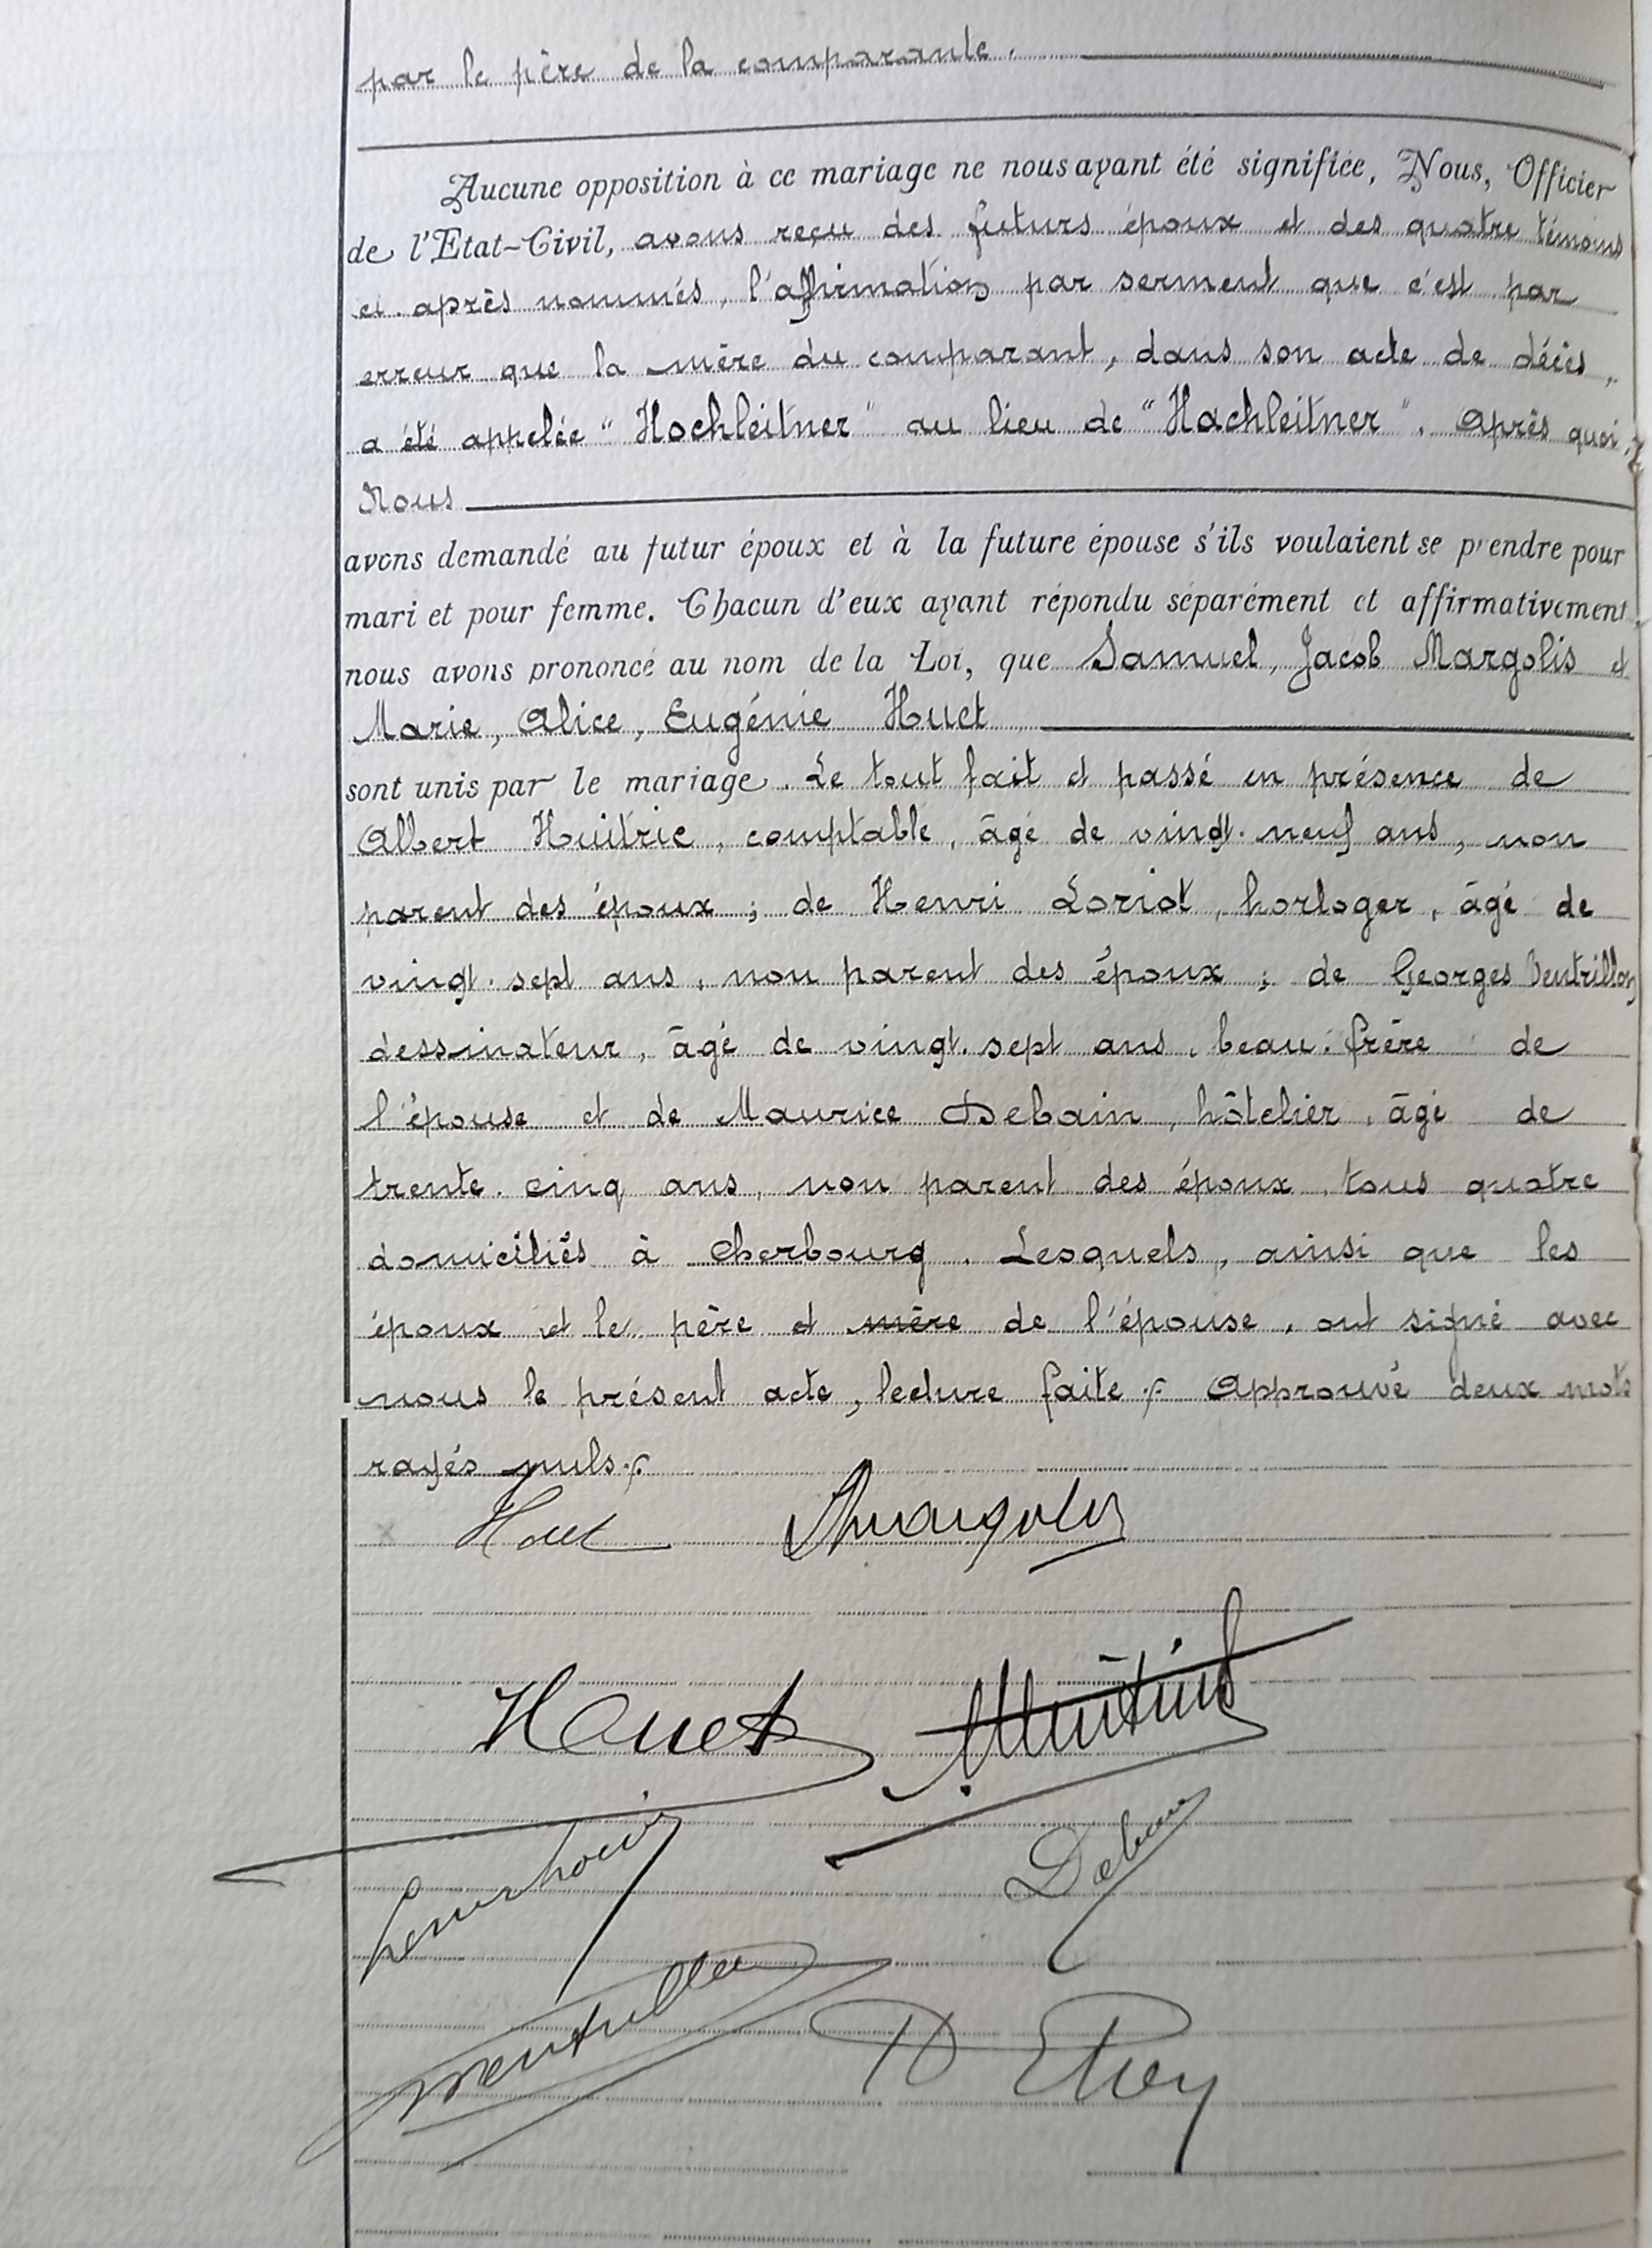 par le père de la comparante.
Aucune opposition à ce mariage ne nous ayant été signifiée, Nous, Officier
de l'Etat-Civil, avons reçu des futurs époux et des quatre témoins
ci-après nommés, l'affirmation par serment que c'est par
erreur que la mère du comparant, dans son acte de décès,
a été appelée "Hochleitner" au lieu de "Hachleitner". Après quoi,
Nous
avons demandé au futur époux et à la future épouse s'ils voulaient se prendre pour
mari et pour femme. Chacun d'eux ayant répondu séparément et affirmativement,
nous avons prononcé au nom de la Loi, que Samuel, Jacob Margolis et
Marie, Alice, Eugénie Huet
sont unis par le mariage. Le tout fait et passé en présence de
Albert Huitric, comptable, âgé de vingt-neuf ans, non
parent des époux; de Henri Loriot, horloger, âgé de
vingt-sept ans, non parent des époux; de Georges Ventrillon
dessinateur, âgé de vingt-sept ans, beau-frère de
l'épouse et de Maurice Debain, hôtelier, âgé de
trente-cinq ans, non parent des époux, tous quatre
domiciliés à Cherbourg. Lesquels, ainsi que les
époux et le père et mère de l'épouse, ont signé avec
nous le présent acte, lecture faite ./. Approuvé deux mots
rayés nuls ./.
Huet SMargolis
Houet
Debain
Ventrillon